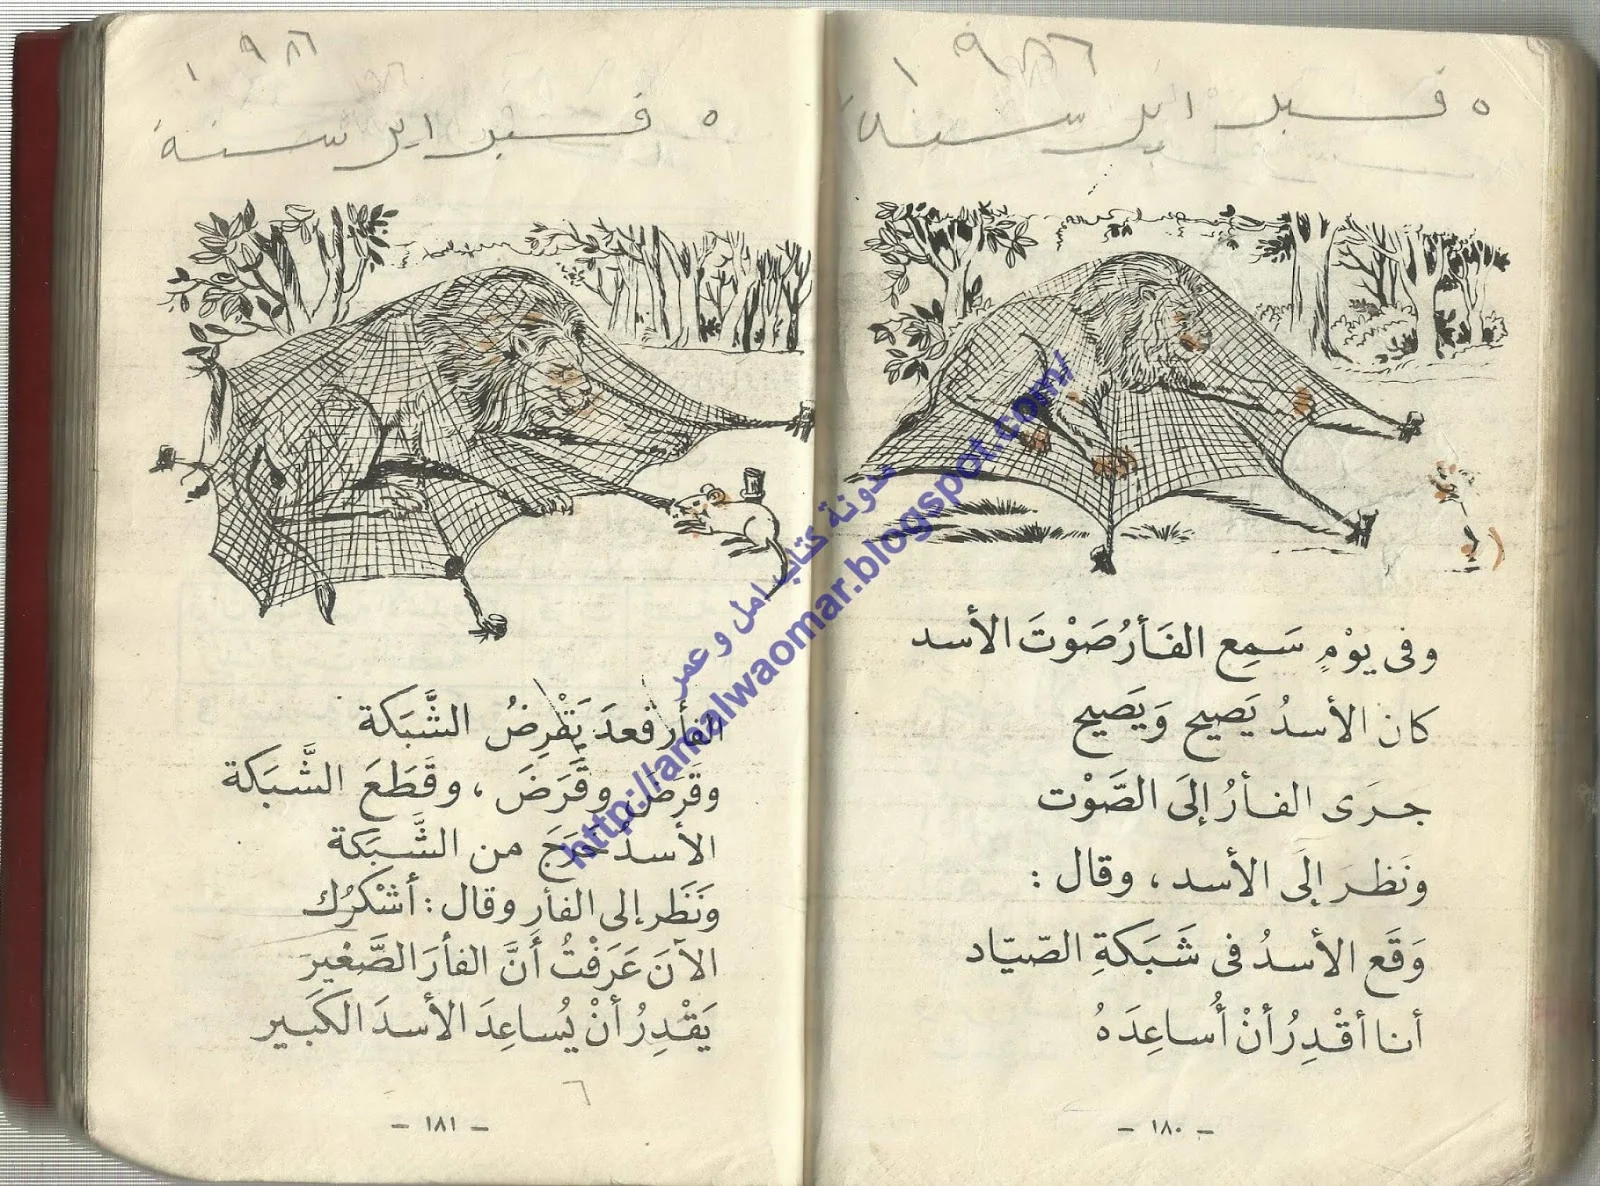 ١٩٨٦
٥ فبراير سنة
وفى يوْمٍ سَمِع الفَأرُ صَوْتَ الأسد
كان الأسدُ يَصيح وَيَصيح
جرَى الفأرُ إلَى الصَّوْت
ونَظرَ إلَى الأسد ، وقال :
وَقَع الأسدُ فى شَبَكةِ الصّيّاد
أنا أقْدِرُ أنْ أُساعِدَهُ
- ١٨٠ -
١٩٨٦
٥ فبراير سنة
الفأر قعدَ يَقْرِضُ الشَّبَكة
وقَرضَ وقَرَضَ ، وقَطَعَ الشَّبَكة
الأسدُ خَرَجَ من الشَّبَكة
ونَظَر إلى الفأر وقال : أشْكرُك
الآنَ عَرَفْتُ أنَّ الفأرَ الصَّغيرَ
يَقْدِرُ أنْ يُساعِدَ الأسدَ الكَبير
٦
- ١٨١ -
مدونة كتاب امل و عمر
http://amalwaomar.blogspot.com/